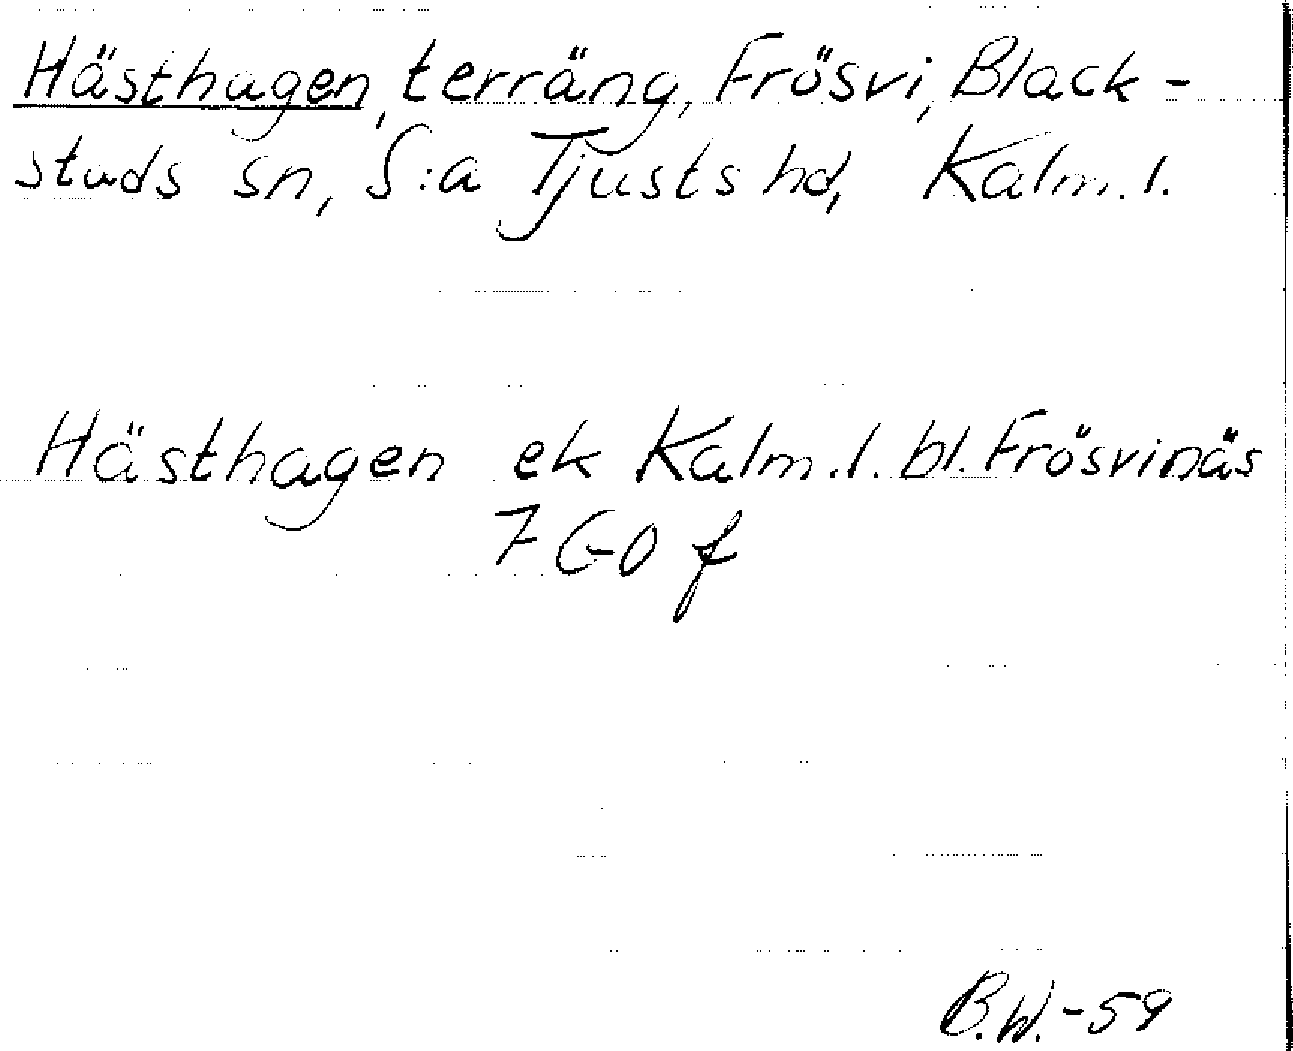 Hästhagen, terräng, Frösvi, Black-
studs sn, S:a Tjusts hd, Kalm. l.
Hästhagen ek Kalm. l. bl. Frösvinäs
7 GO f
B.W.-59